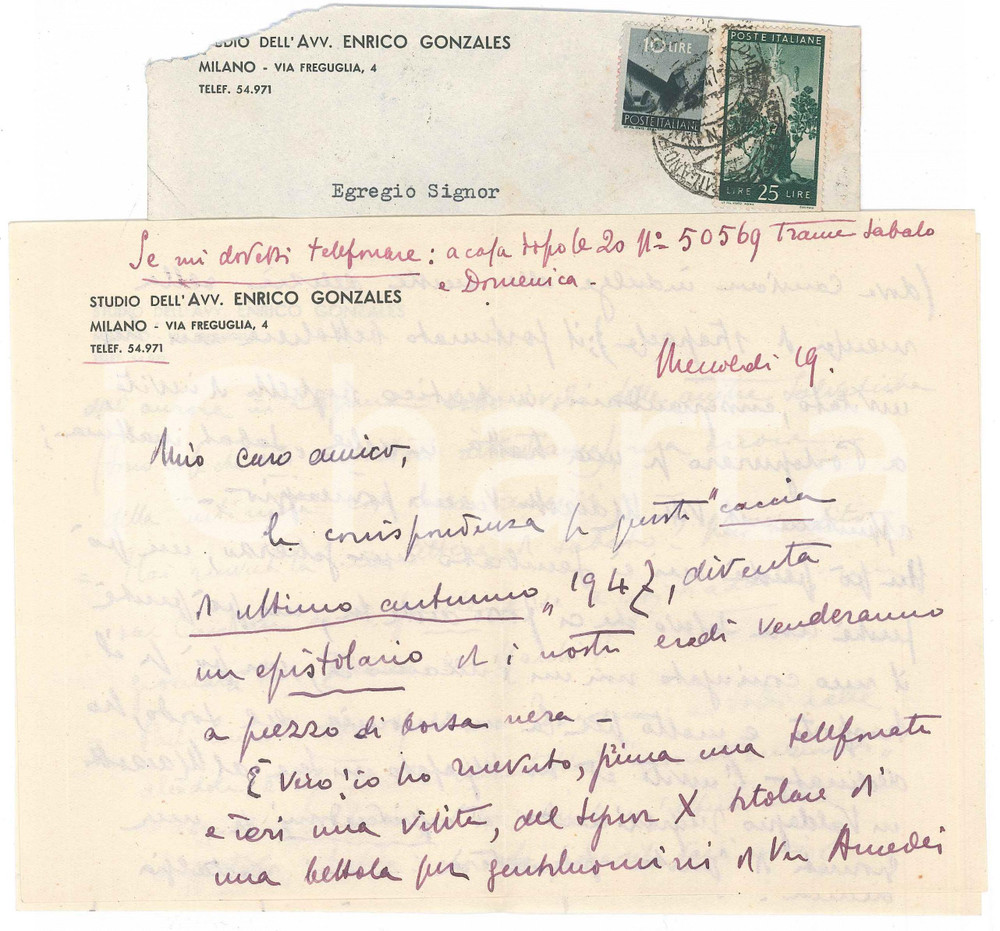 STUDIO DELL'AVV. ENRICO GONZALES
MILANO - VIA FREGUGLIA, 4
TELEF. 54.971
10 LIRE
POSTE ITALIANE
POSTE ITALIANE
LIRE 25 LIRE
MILANO
Egregio Signor
Se mi dovessi telefonare: a casa dopo le 20 No 50569 Tranne Sabato
e Domenica -
STUDIO DELL'AVV. ENRICO GONZALES
MILANO - VIA FREGUGLIA, 4
TELEF. 54.971
Mercoledì 19.
Mio caro amico,
la corrispondenza p questa "caccia
d'ultimo autunno" 1947, diventa
un epistolario ch i nostri eredi venderanno
a prezzo di borsa nera -
È vero! io ho ricevuto, prima una telefonata
e ieri una visita, del Signor X titolare d'
una bettola per gentiluomini d Via Amedei
Charta